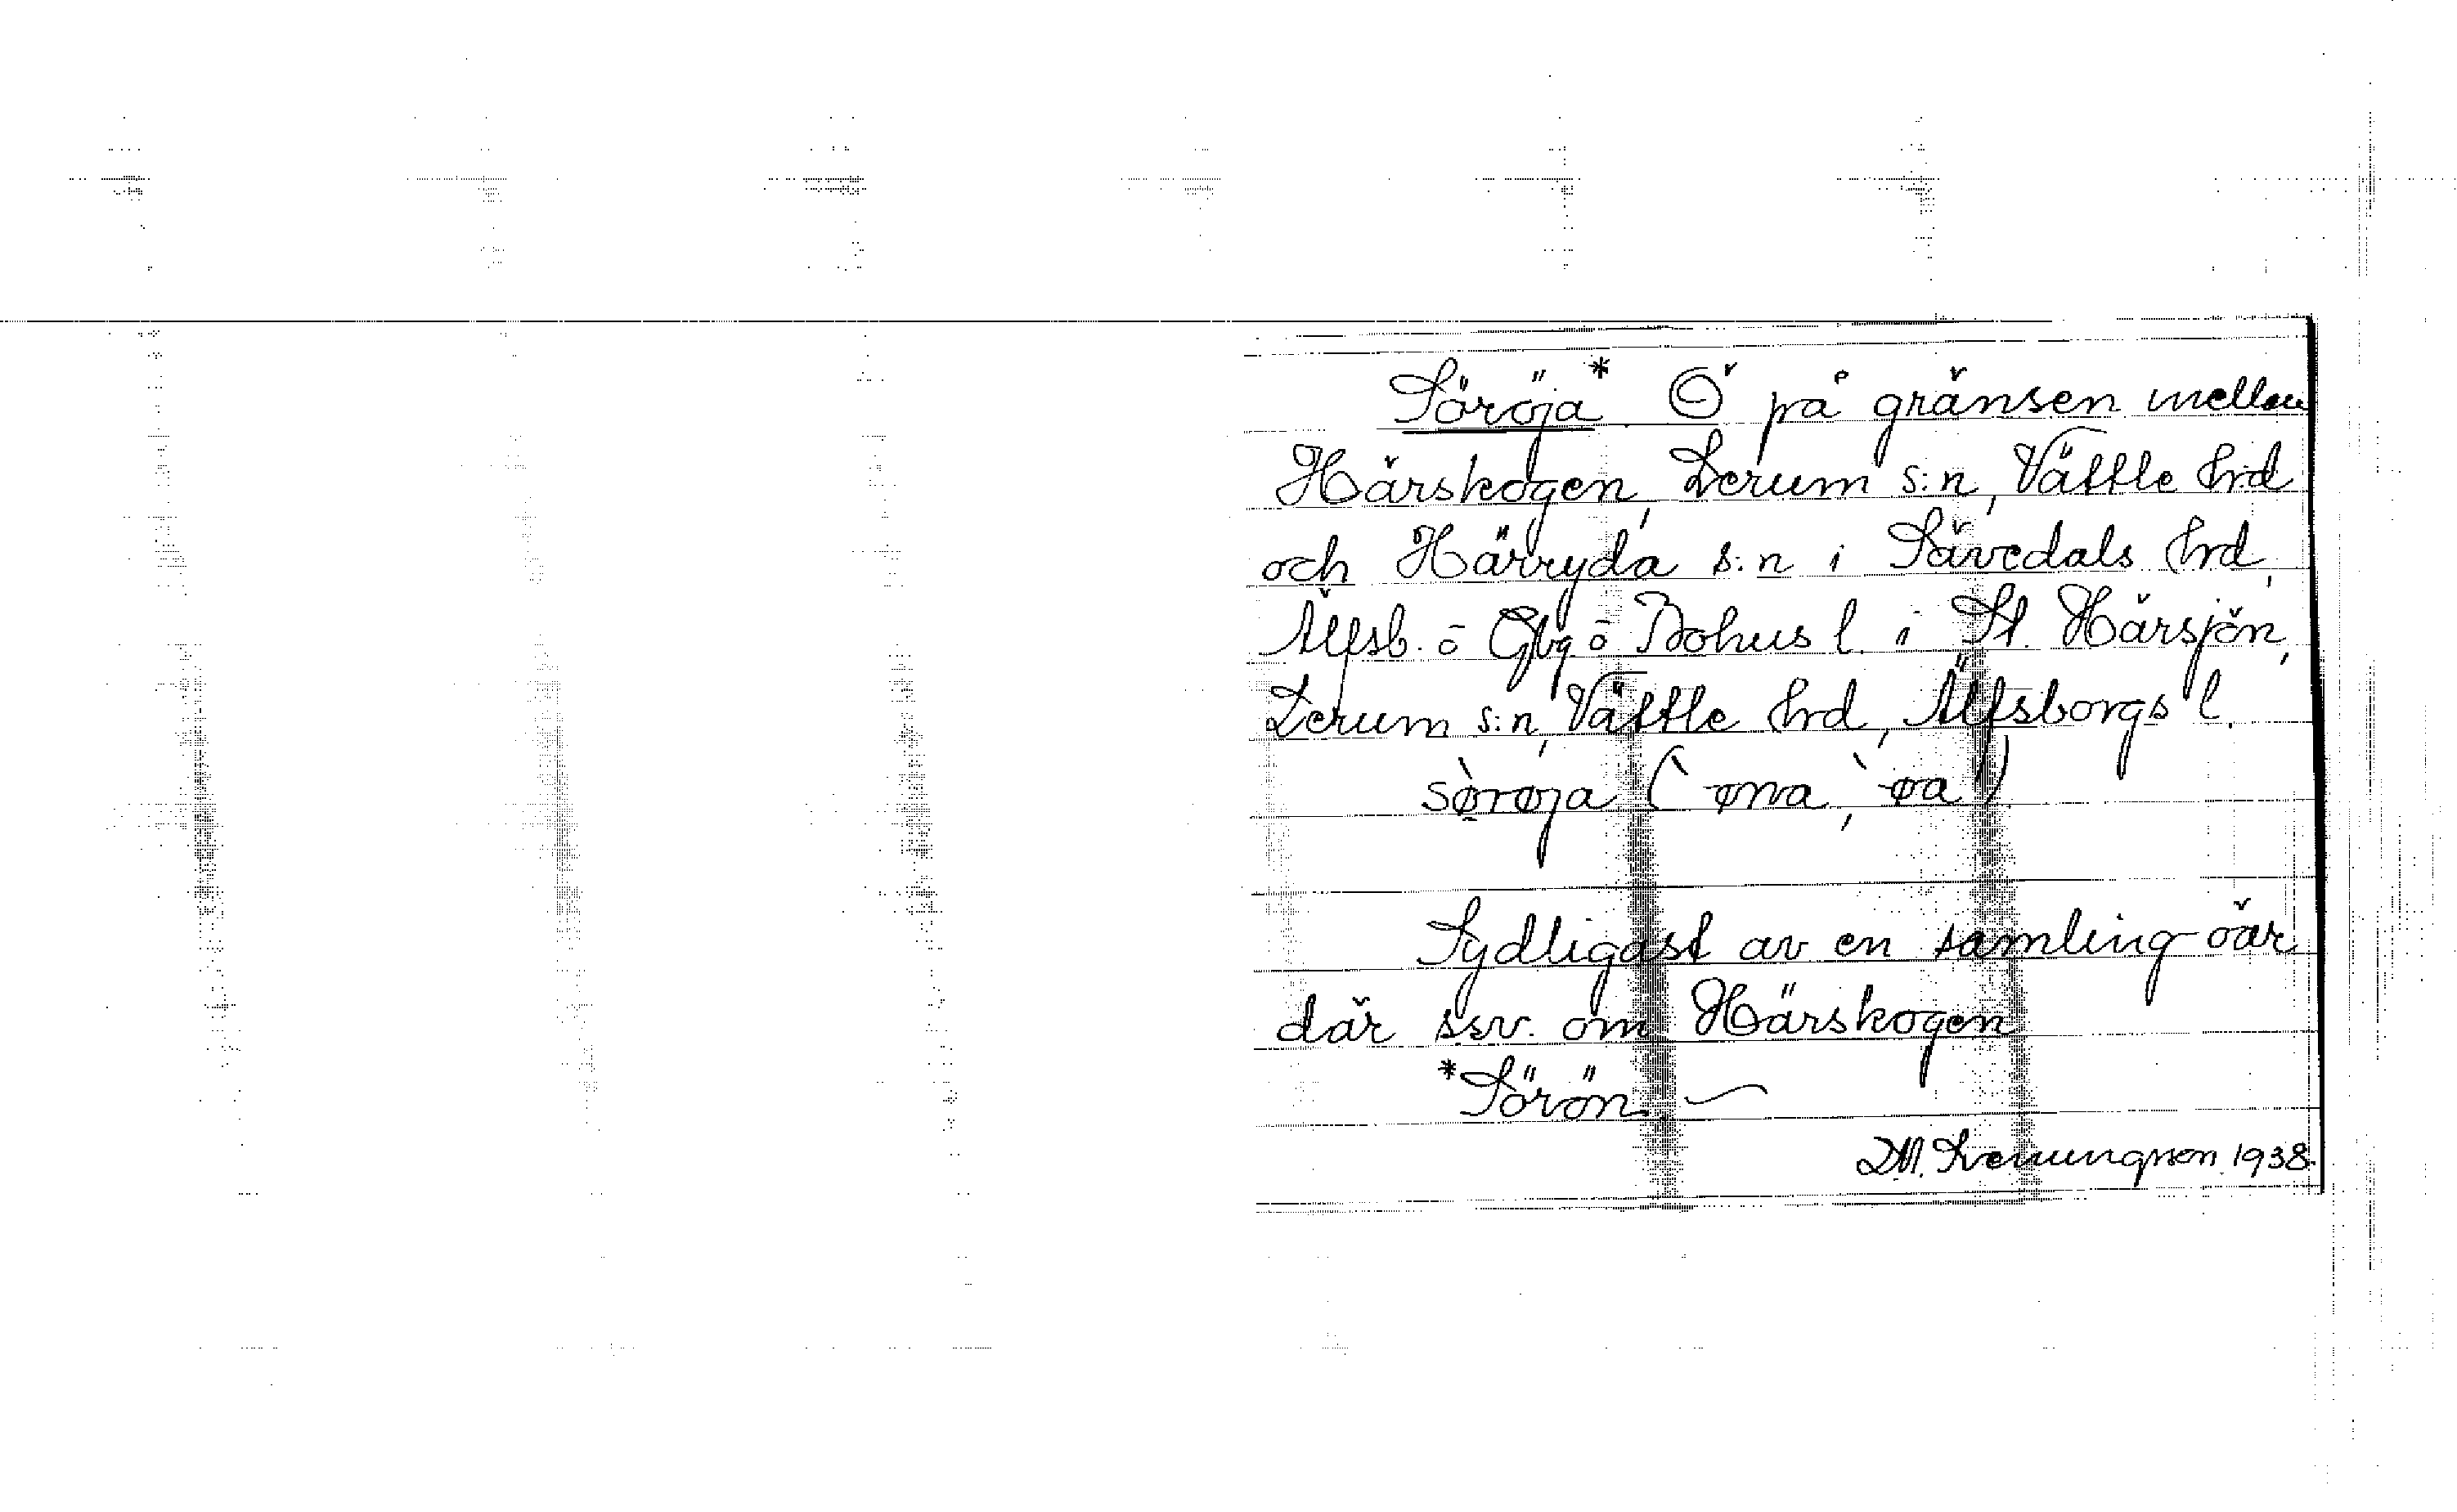 Söröja* Ö på gränsen mellan
Härskogen, Lerum s:n, Vättle hrd
och Härryda s:n i Sävedals hrd,
Älfsb. o Gbg o Bohus l. i St. Härsjön,
Lerum s:n, Vättle hrd, Älfsborgs l.
sø̀røja (`-øna, `-øa)
Sydligast av en samling öar
där ssv. om Härskogen
*Sörön.
1938.